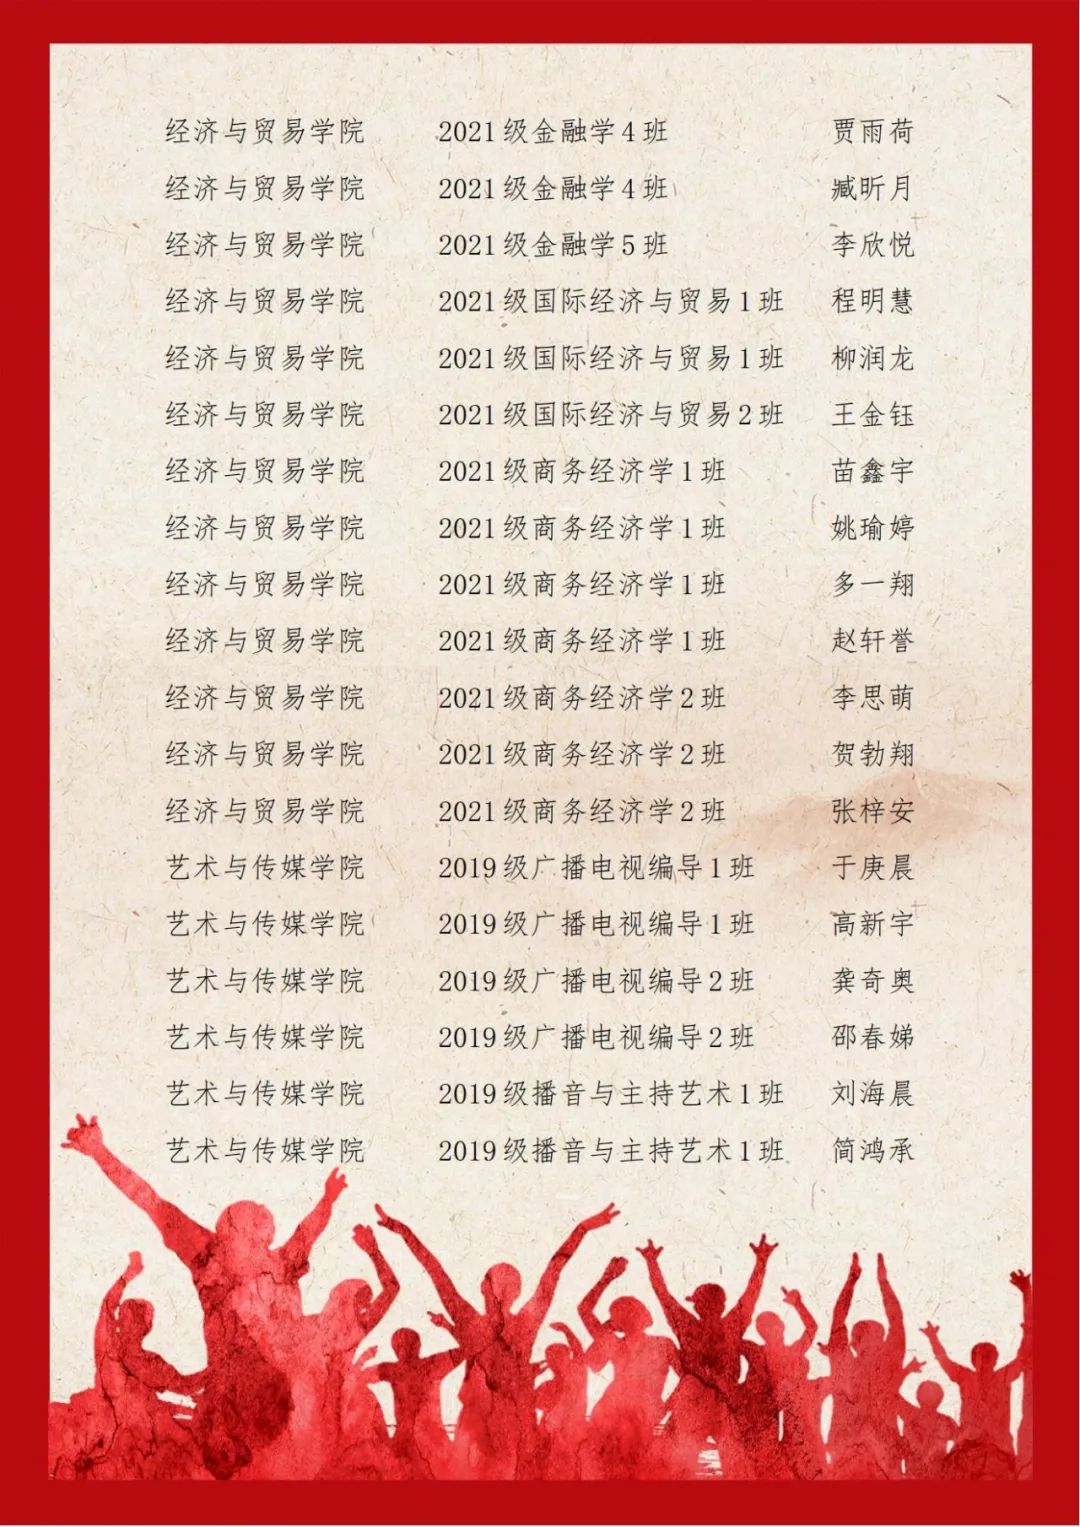 经济与贸易学院 2021级金融学4班 贾雨荷
经济与贸易学院 2021级金融学4班 臧昕月
经济与贸易学院 2021级金融学5班 李欣悦
经济与贸易学院 2021级国际经济与贸易1班 程明慧
经济与贸易学院 2021级国际经济与贸易1班 柳润龙
经济与贸易学院 2021级国际经济与贸易2班 王金钰
经济与贸易学院 2021级商务经济学1班 苗鑫宇
经济与贸易学院 2021级商务经济学1班 姚瑜婷
经济与贸易学院 2021级商务经济学1班 多一翔
经济与贸易学院 2021级商务经济学1班 赵轩誉
经济与贸易学院 2021级商务经济学2班 李思萌
经济与贸易学院 2021级商务经济学2班 贺勃翔
经济与贸易学院 2021级商务经济学2班 张梓安
艺术与传媒学院 2019级广播电视编导1班 于庚晨
艺术与传媒学院 2019级广播电视编导1班 高新宇
艺术与传媒学院 2019级广播电视编导2班 龚奇奥
艺术与传媒学院 2019级广播电视编导2班 邵春娣
艺术与传媒学院 2019级播音与主持艺术1班 刘海晨
艺术与传媒学院 2019级播音与主持艺术1班 简鸿承